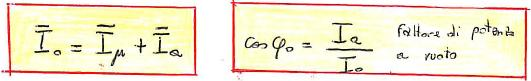 Ī₀ = Ī_μ + Ī_a
cos φ₀ = I_a / I₀ fattore di potenza
a vuoto